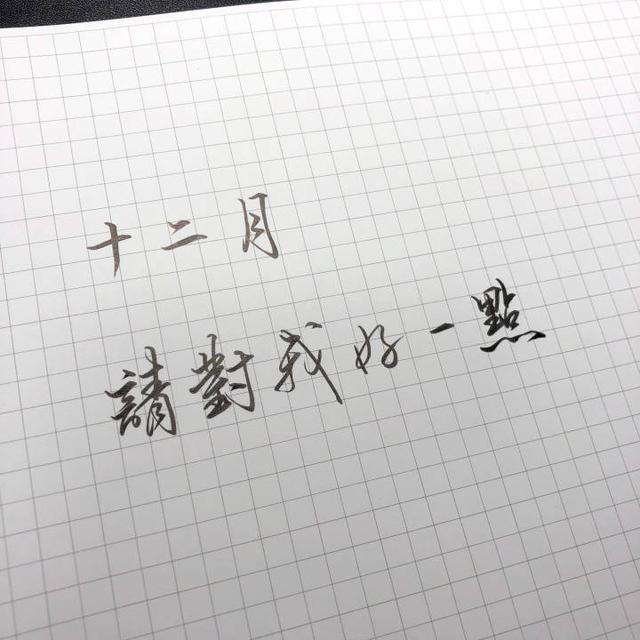 十二月
請對我好一點